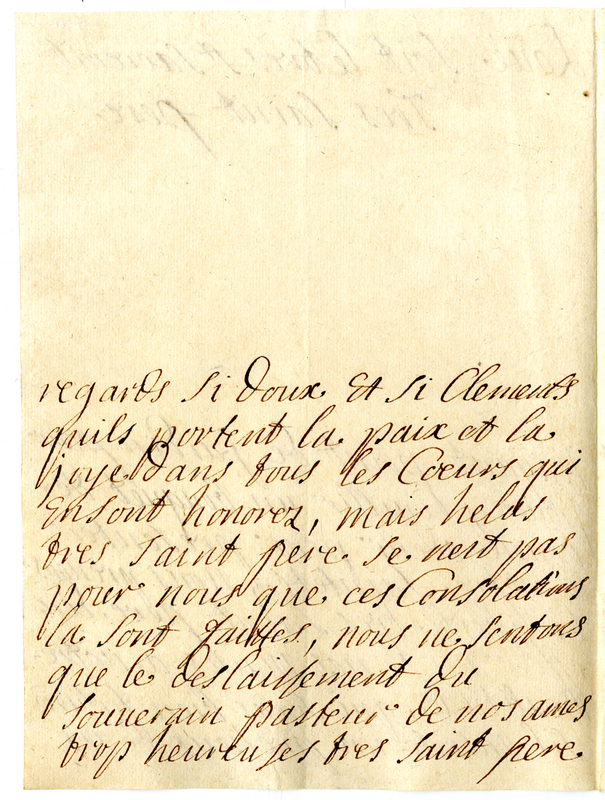 regards si doux Et si Clements
quils portent la paix et la
joye dans tous les Coeurs qui
En sont honorez, mais helas
tres saint pere se nest pas
pour nous que ces Consolations
la sont faittes, nous ne sentons
que le deslaissement du
souuerain pasteur de nos ames
trop heureuses tres saint pere